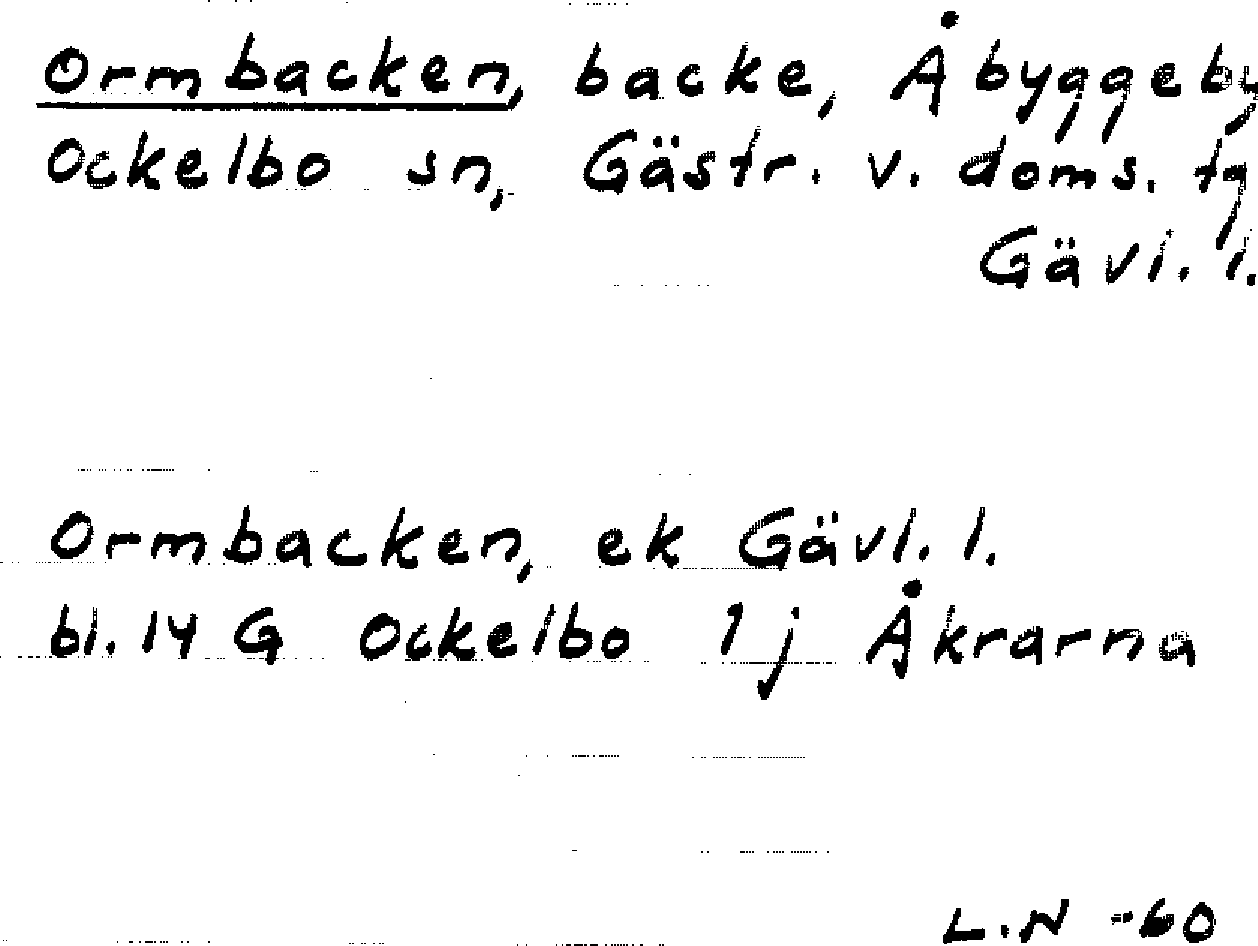 Ormbacken, backe, Åbyggeby
Ockelbo sn, Gästr. v. doms. tg
Gävl. l.
Ormbacken, ek Gävl. l.
bl. 14 G Ockelbo 1 j Åkrarna
L.N -60